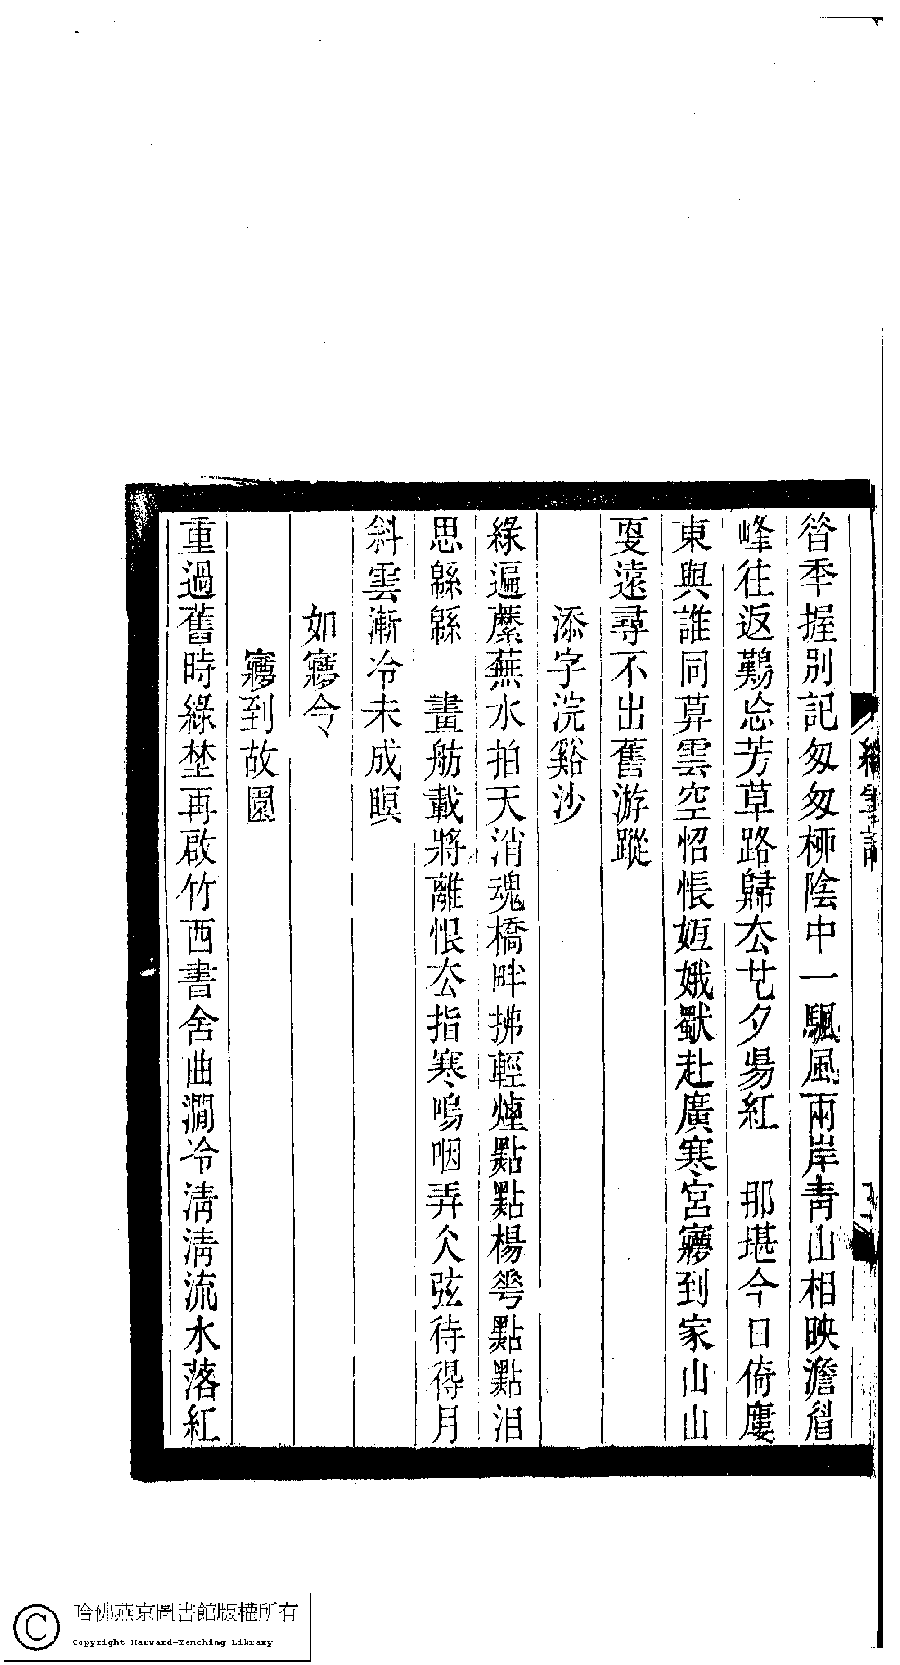 昝秊握別記匆匆桺陰中一颿風兩岸青山相映澹眉
峰往返鷬忩芳草路歸厺芑夕昜紅　那堪今日倚廔
東與誰同萛雲空怊悵姮娥獸赴廣寒宮㝱到家山山
耎遠尋不出舊游蹤
添字浣谿沙
綠遍蘼蕪水拍天消魂橋畔拂輕煙點點楊蕚點點泪
思緜緜　畫舫載將離恨厺指寒嗚咽弄仌弦待得月
斜雲漸冷未成瞑
如㝱令
㝱到故園
重過舊時綠埜再啟竹西書舍曲澗冷清清流水落紅
哈佛燕京圖書館版權所有
Copyright Harvard-Yenching Library